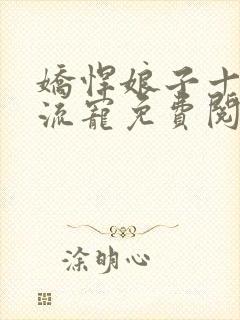 嬌悍娘子十
流寵免費閱
涂明心